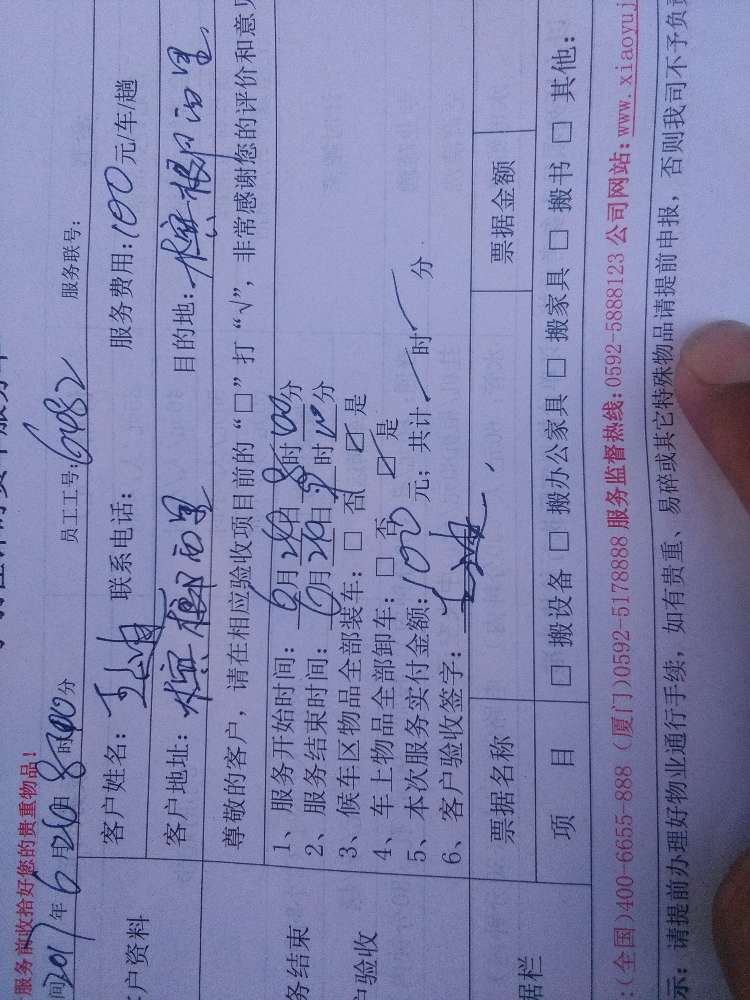 服务前收拾好您的贵重物品!
间2017年6月26日8时00分 员工工号:6482 服务联号:
户资料
客户姓名: 联系电话: 服务费用:100元/车/趟
客户地址: 槟榔西里 目的地: 槟榔西里
尊敬的客户,请在相应验收项目前的“□”打“√”,非常感谢您的评价和意见
务结束
户验收
1、服务开始时间:6月26日8时00分
2、服务结束时间:6月26日9时10分
3、候车区物品全部装车:□否 ☑是
4、车上物品全部卸车:□否 ☑是
5、本次服务实付金额:100元;共计 时 分
6、客户验收签字:
据栏
票据名称 票据金额
项目 □搬设备 □搬办公家具 □搬家具 □搬书 □其他:
:(全国)400-6655-888 (厦门)0592-5178888 服务监督热线:0592-5888123 公司网站:www.xiaoyuj
示:请提前办理好物业通行手续,如有贵重、易碎或其它特殊物品请提前申报,否则我司不予负责